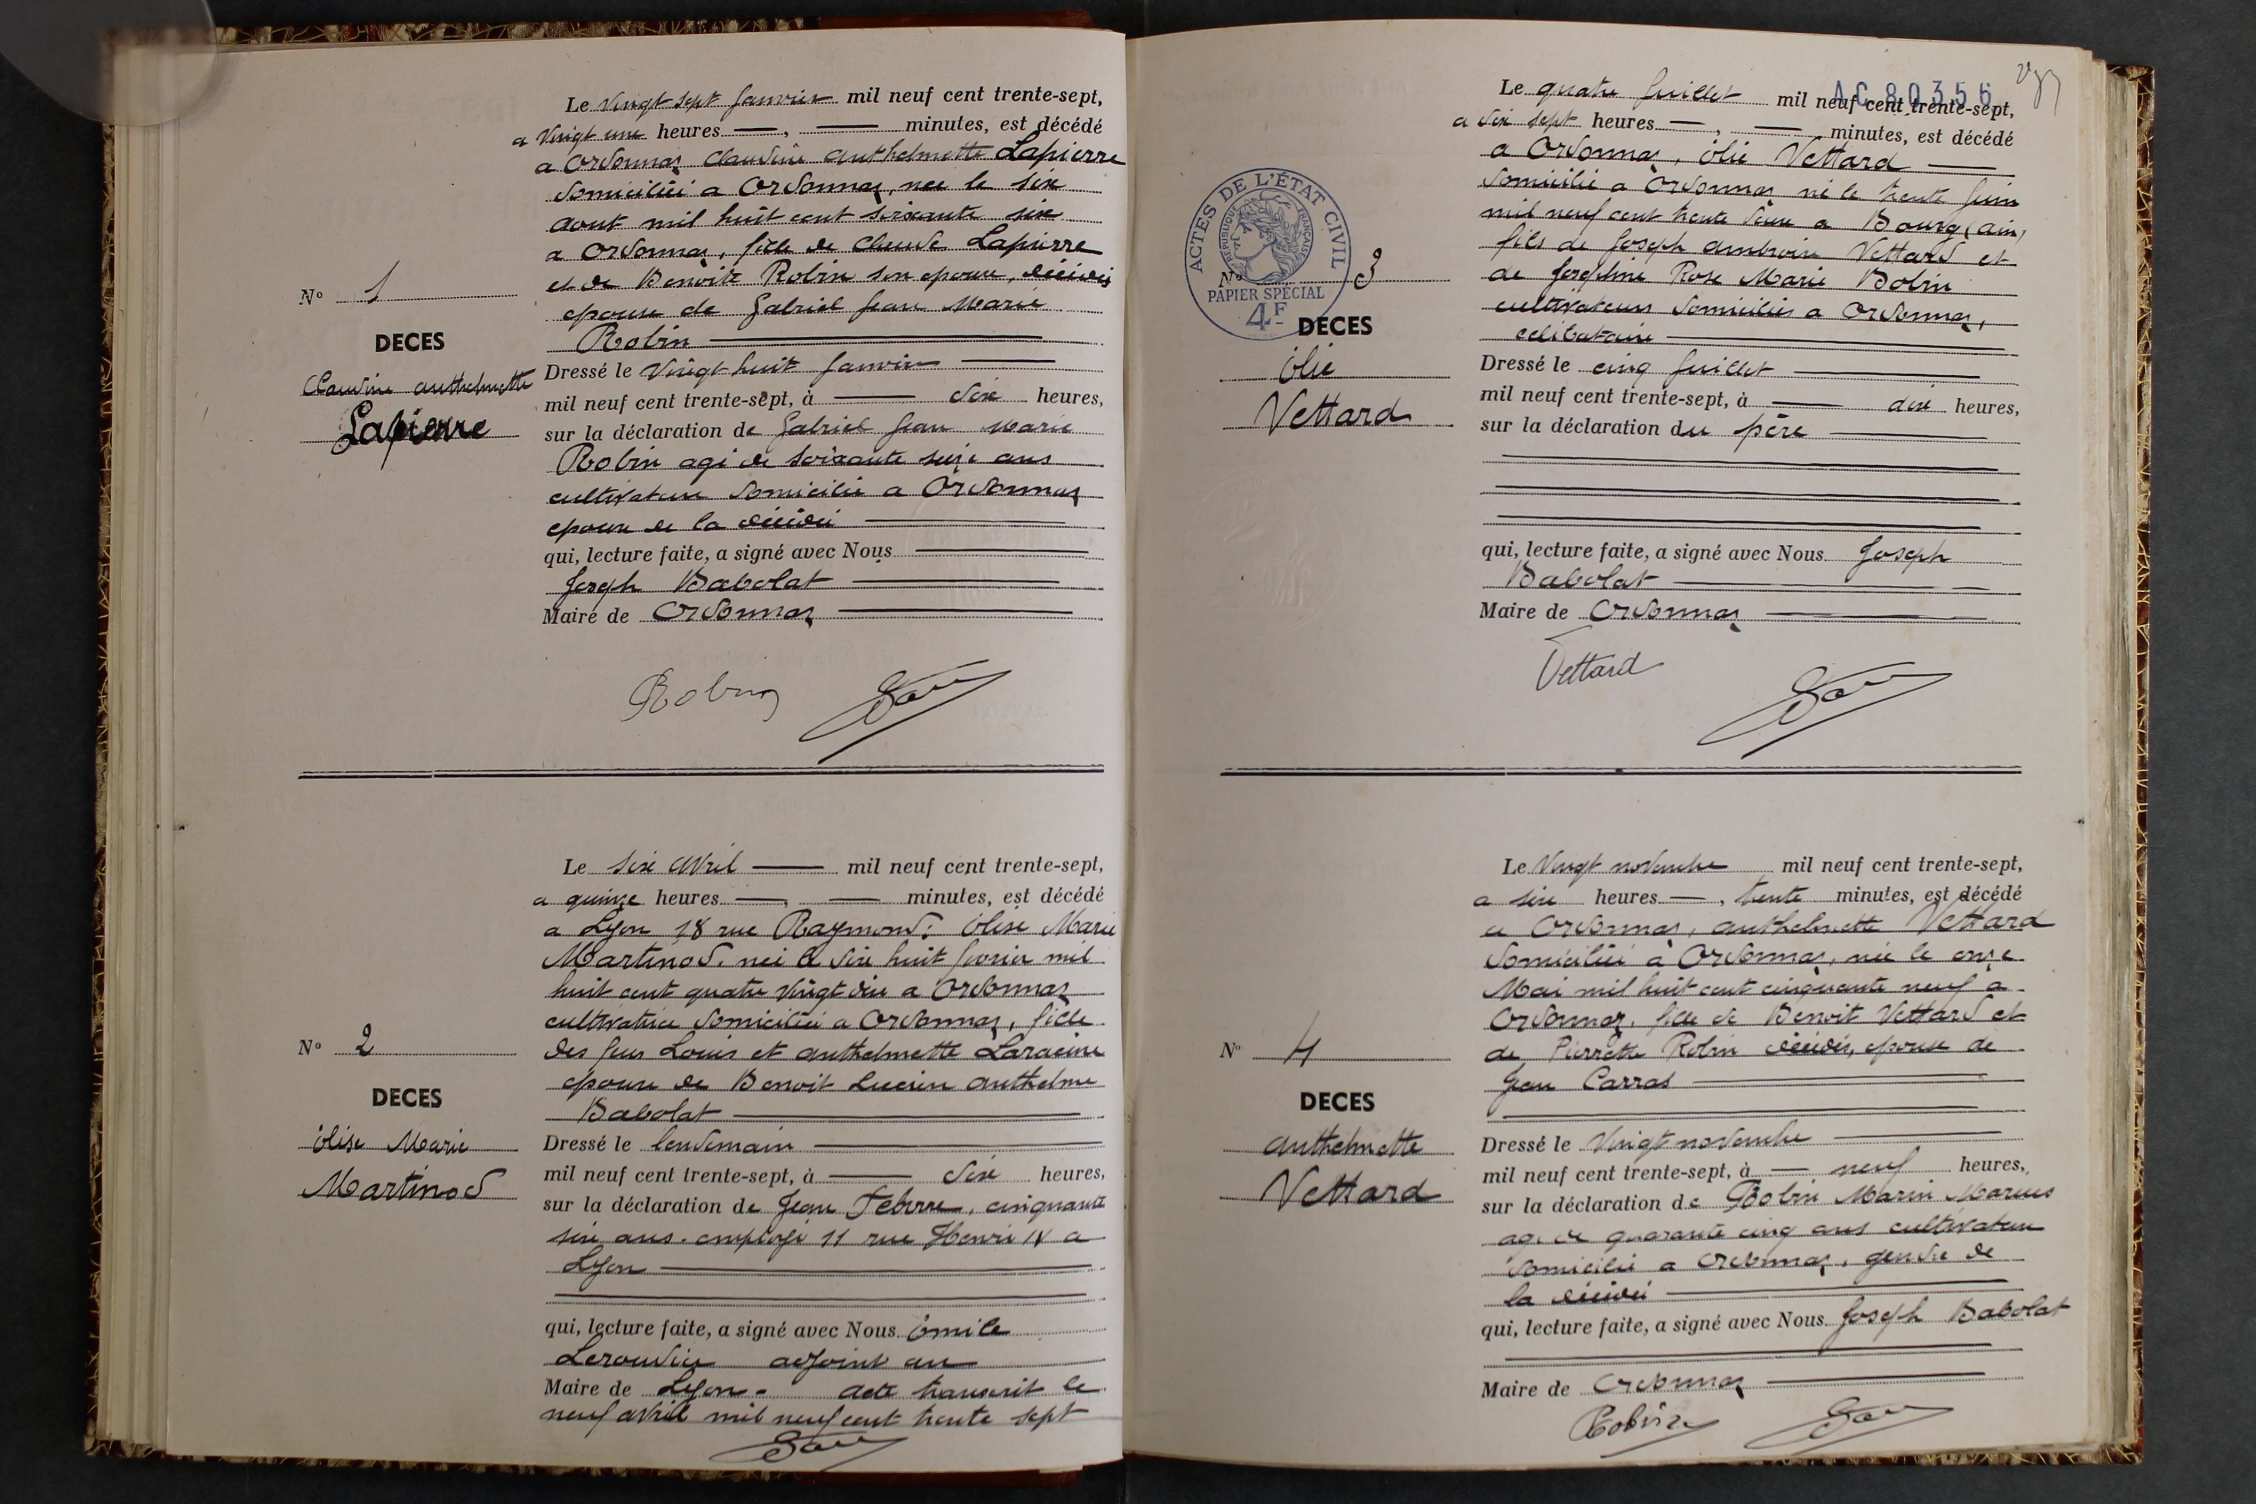 Le Vingt sept Janvier mil neuf cent trente-sept,
a Vingt une heures —, — minutes, est décédé
a Ordonnaz Claudine anthelmette Lapierre
domiciliée a Ordonnaz, nee le six
aout mil huit cent soixante six
a Ordonnaz, fille de Claude Lapierre
et de Benoite Robin son epouse, décédés
epouse de Gabriel Jean Marie
Robin
Nº 1
DECES
Claudine anthelmette
Lapierre
Dressé le Vingt huit Janvier
mil neuf cent trente-sept, à — dix heures,
sur la déclaration de Gabriel Jean Marie
Robin agé de soixante seize ans
cultivateur domicilié a Ordonnaz
epoux de la décédée
qui, lecture faite, a signé avec Nous
Joseph Babolat
Maire de Ordonnaz
Robin
Le six avril — mil neuf cent trente-sept,
a quinze heures —, — minutes, est décédé
a Lyon 18 rue Raymond: élise Marie
Martinod. née le dix huit fevrier mil
huit cent quatre vingt dix a Ordonnaz
cultivatrice domiciliée a Ordonnaz, fille
des feus Louis et anthelmette Laracine
epouse de Benoit Lucien anthelme
Babolat
Nº 2
DECES
élise Marie
Martinod
Dressé le lendemain
mil neuf cent trente-sept, à — dix heures,
sur la déclaration de Jean cinquante
six ans. employé 11 rue Henri IV a
Lyon
qui, lecture faite, a signé avec Nous émile
adjoint au
Maire de Lyon. acte transcrit le
neuf avril mil neuf cent trente sept
AC 80356
Le quatre Juillet mil neuf cent trente-sept,
a dix sept heures —, — minutes, est décédé
a Ordonnaz, élie Vettard
domicilié a Ordonnaz né le trente Juin
mil neuf cent trente deux a Bourg (ain)
fils de Joseph ambroise Vettard et
de Josephine Rose Marie Bolin
cultivateurs domiciliés a Ordonnaz,
celibataire
ACTES DE L'ÉTAT CIVIL
RÉPUBLIQUE FRANÇAISE
PAPIER SPÉCIAL
4F
Nº 3
DECES
élie
Vettard
Dressé le cinq Juillet
mil neuf cent trente-sept, à — dix heures,
sur la déclaration du père
qui, lecture faite, a signé avec Nous Joseph
Babolat
Maire de Ordonnaz
Vettard
Le Vingt novembre mil neuf cent trente-sept,
a six heures —, trente minutes, est décédé
a Ordonnaz, anthelmette Vettard
domiciliée à Ordonnaz, née le onze
Mai mil huit cent cinquante neuf a
Ordonnaz, fille de Benoit Vettard et
de Pierrette Robin décédés, epouse de
Jean Carras
Nº 4
DECES
anthelmette
Vettard
Dressé le Vingt novembre
mil neuf cent trente-sept, à — neuf heures,
sur la déclaration de Robin Marin Marius
agé de quarante cinq ans cultivateur
domicilié a Ordonnaz, gendre de
la décédée
qui, lecture faite, a signé avec Nous Joseph Babolat
Maire de Ordonnaz
Robin